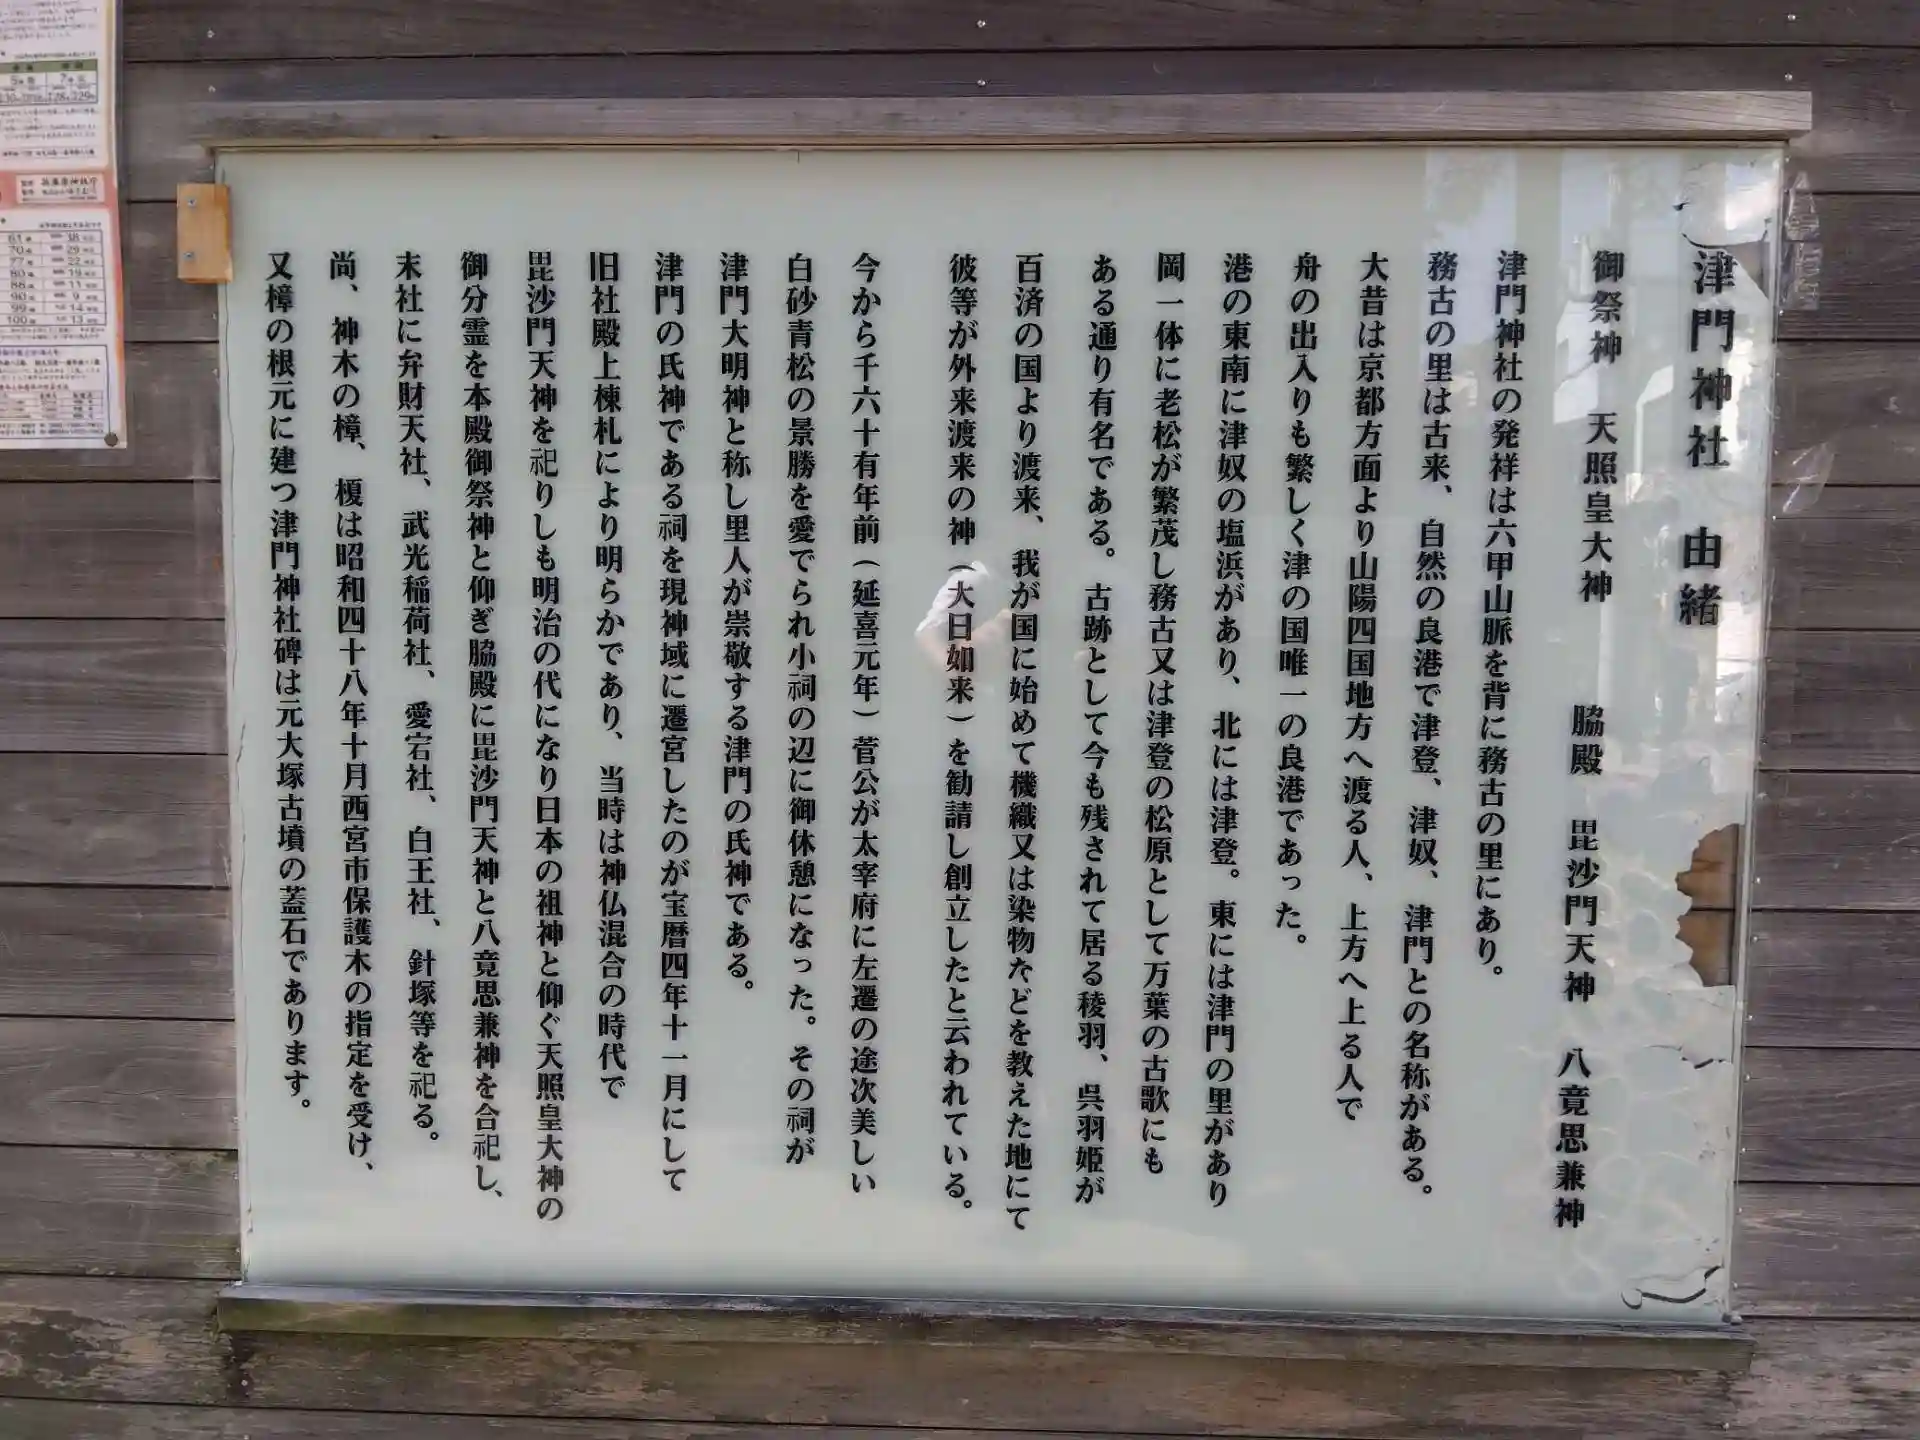 津門神社　由緒
御祭神　天照皇大神　脇殿　毘沙門天神　八竟思兼神
津門神社の発祥は六甲山脈を背に務古の里にあり。
務古の里は古来、自然の良港で津登、津奴、津門との名称がある。
大昔は京都方面より山陽四国地方へ渡る人、上方へ上る人で
舟の出入りも繁しく津の国唯一の良港であった。
港の東南に津奴の塩浜があり、北には津登。東には津門の里があり
岡一体に老松が繁茂し務古又は津登の松原として万葉の古歌にも
ある通り有名である。古跡として今も残されて居る稜羽、呉羽姫が
百済の国より渡来、我が国に始めて機織又は染物などを教えた地にて
彼等が外来渡来の神（大日如来）を勧請し創立したと云われている。
今から千六十有年前（延喜元年）菅公が太宰府に左遷の途次美しい
白砂青松の景勝を愛でられ小祠の辺に御休憩になった。その祠が
津門大明神と称し里人が崇敬する津門の氏神である。
津門の氏神である祠を現神域に遷宮したのが宝暦四年十一月にして
旧社殿上棟札により明らかであり、当時は神仏混合の時代で
毘沙門天神を祀りしも明治の代になり日本の祖神と仰ぐ天照皇大神の
御分霊を本殿御祭神と仰ぎ脇殿に毘沙門天神と八竟思兼神を合祀し、
末社に弁財天社、武光稲荷社、愛宕社、白王社、針塚等を祀る。
尚、神木の樟、榎は昭和四十八年十月西宮市保護木の指定を受け、
又樟の根元に建つ津門神社碑は元大塚古墳の蓋石であります。
61
70
77
80
88
90
99
100
38
29
22
19
11
9
14
13